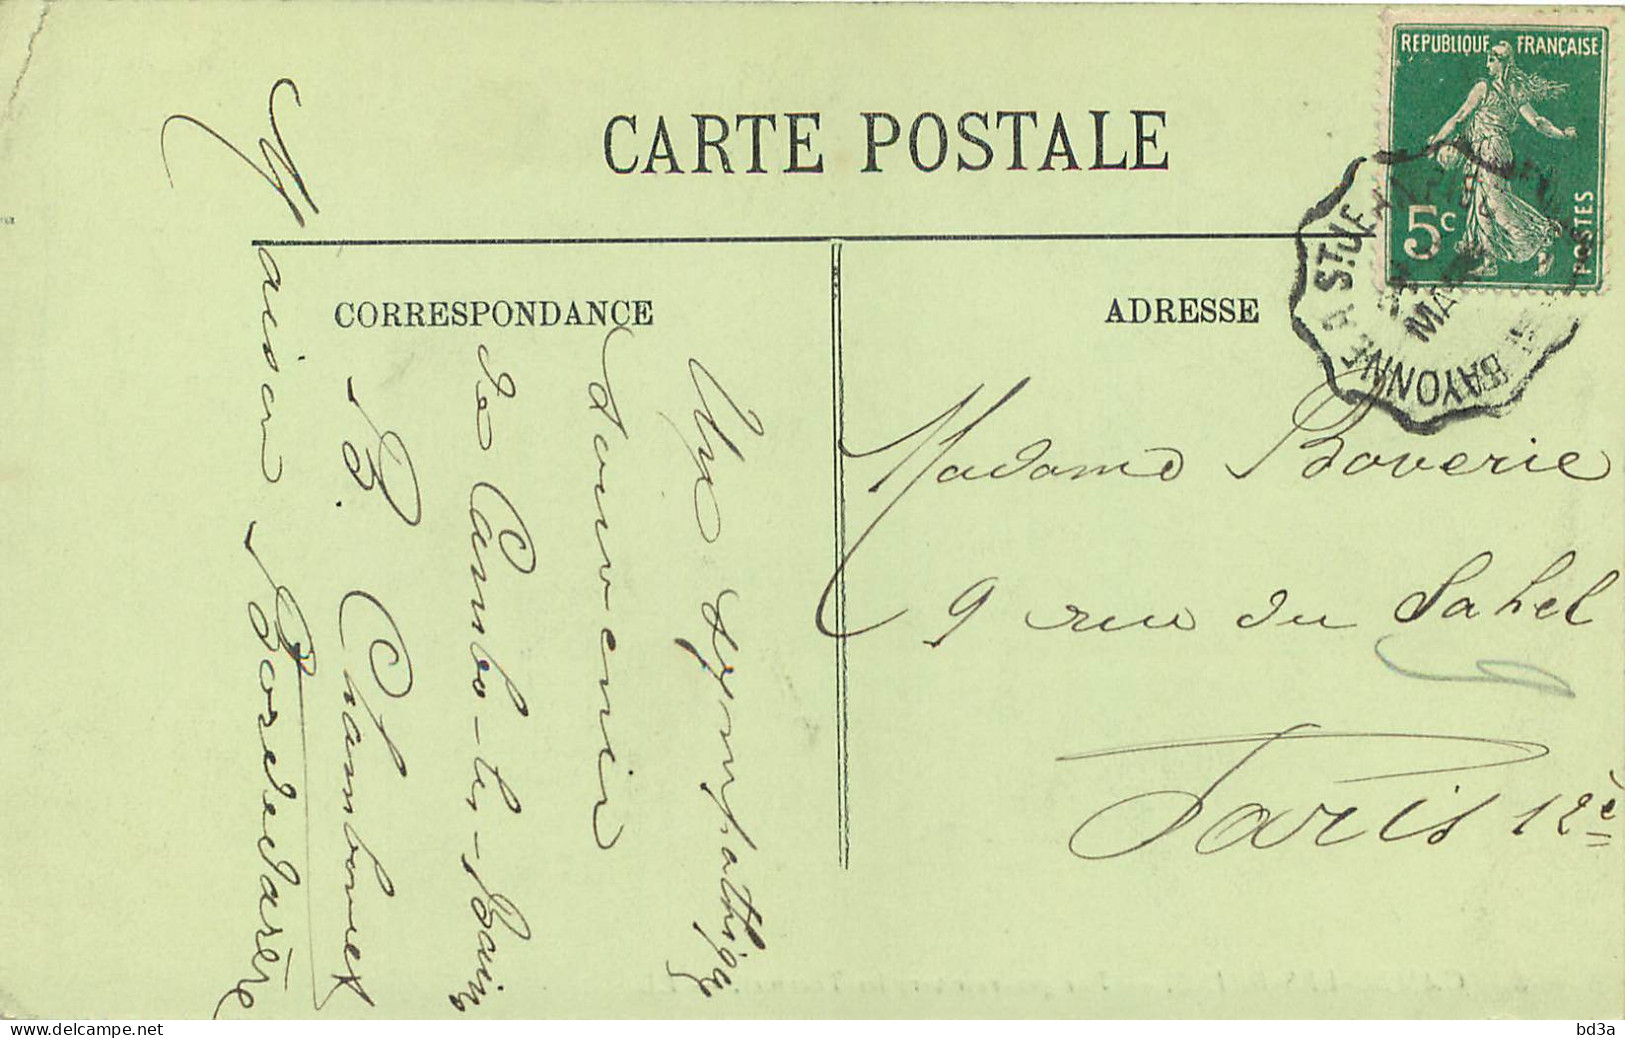 CARTE POSTALE
REPUBLIQUE FRANÇAISE
5c
POSTES
BAYONNE A ST JE
MA
CORRESPONDANCE
ADRESSE
Un sympathique
souvenir
de Cambo-les-Bains
B. Chambonnet
Maison Bordedarère
Madame Boverie
9 rue du Sahel
Paris 12è
delcampe.net
bd3a